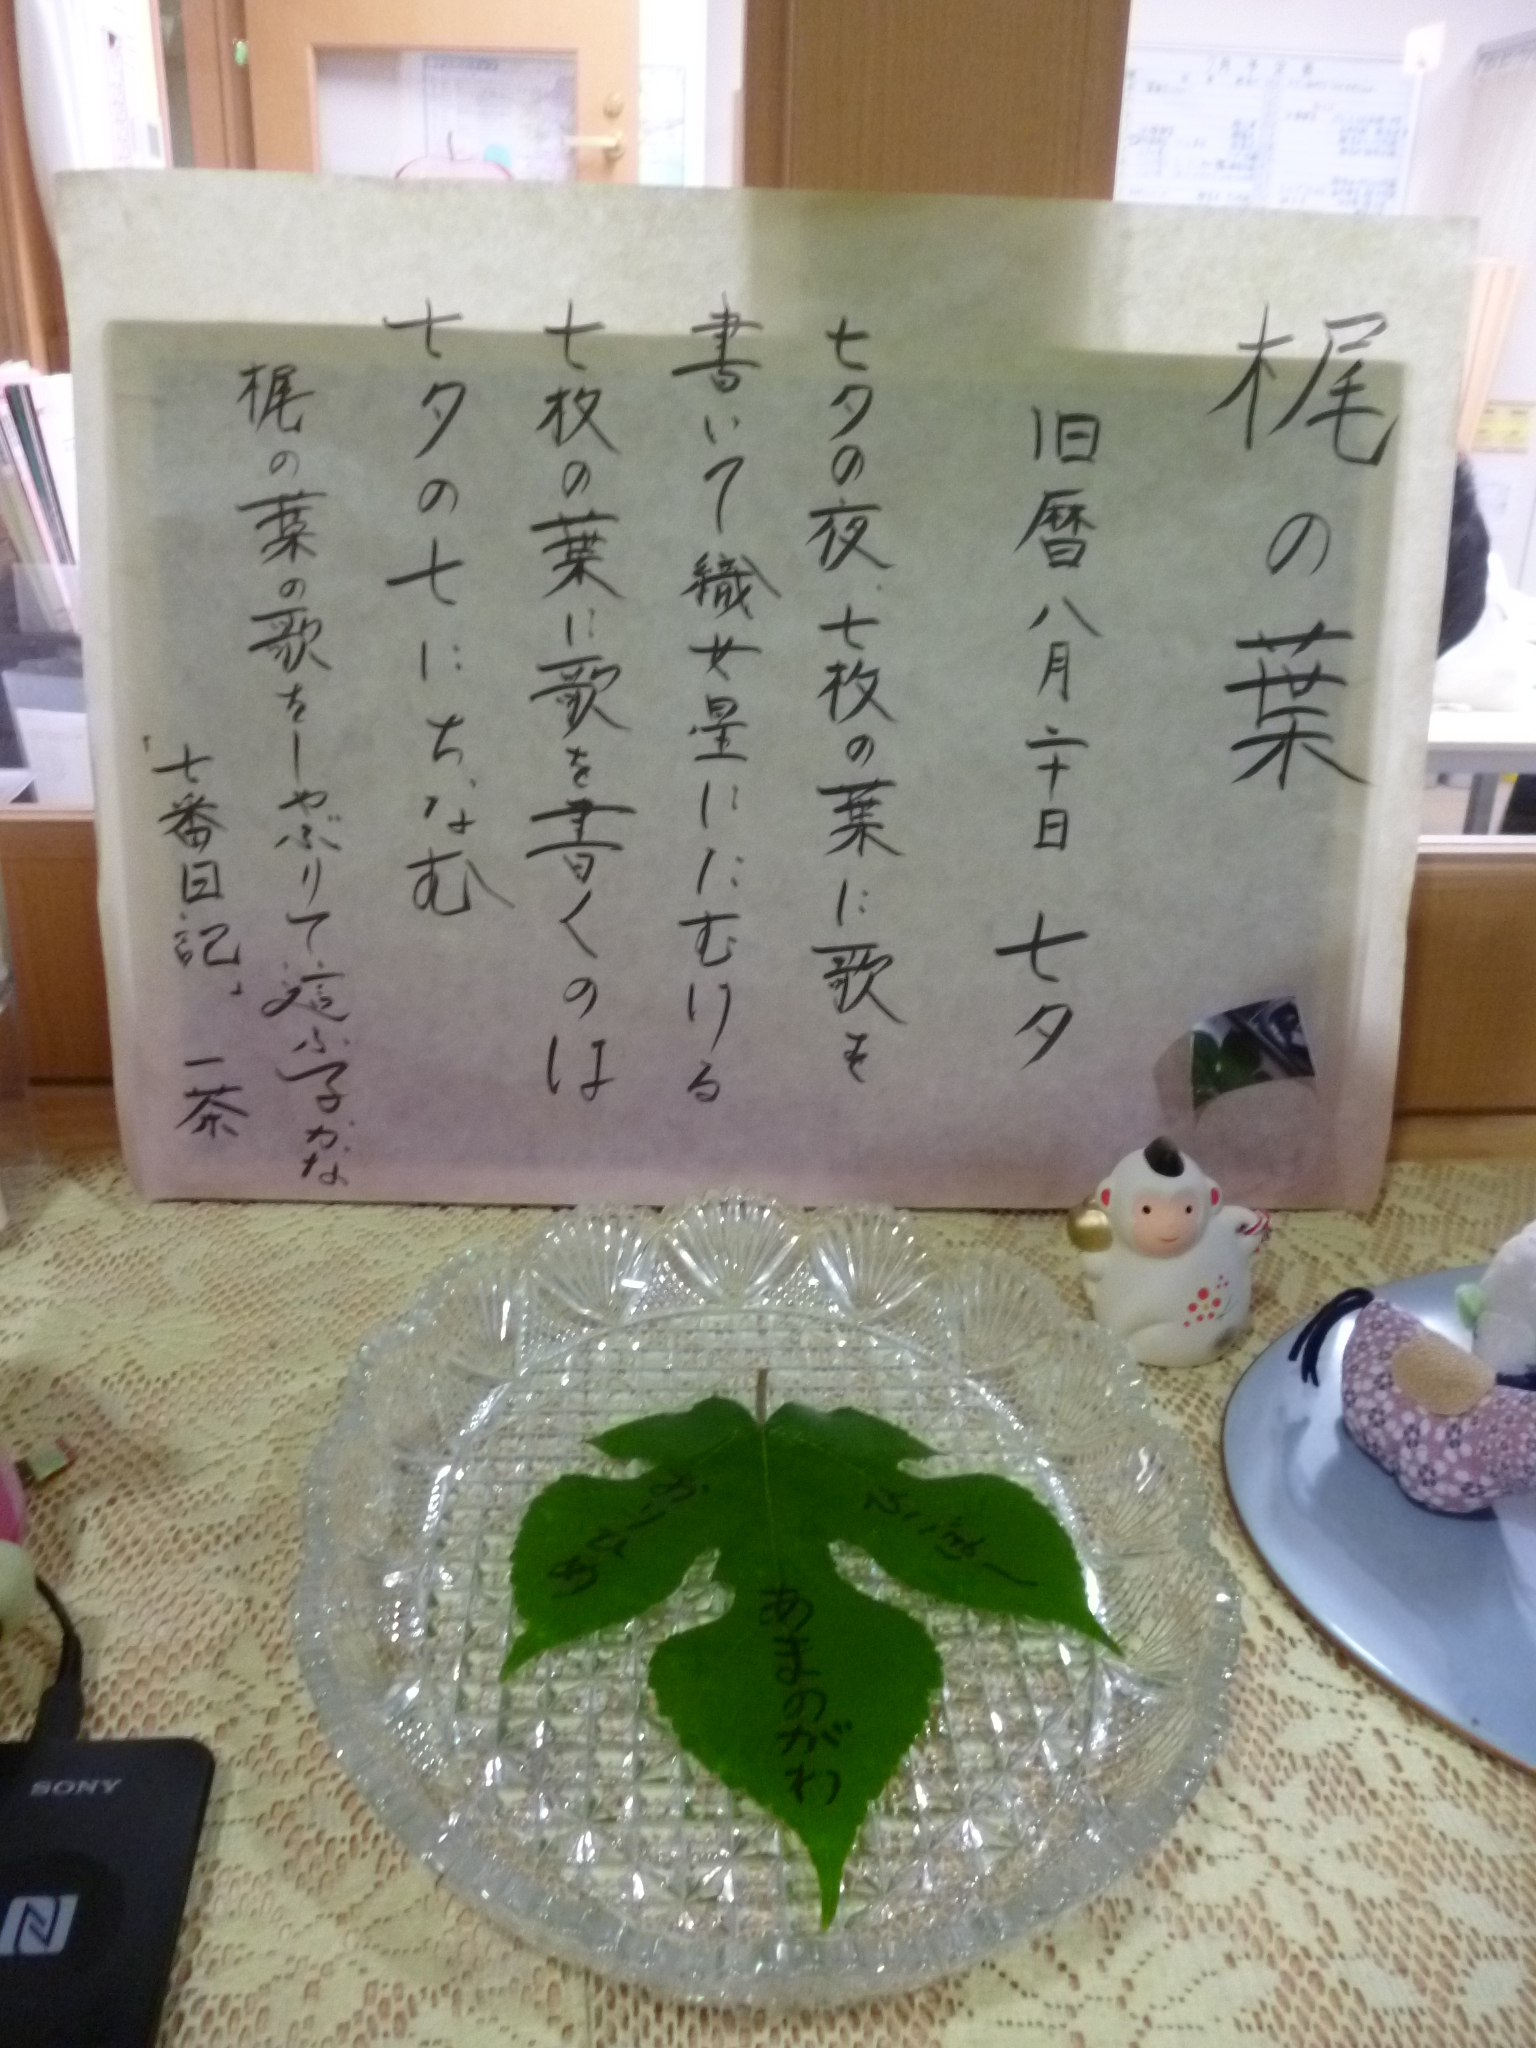 梶の葉
旧暦八月二十日 七夕
七夕の夜、七枚の葉に歌を
書いて織女星にたむける
七枚の葉に歌を書くのは
七夕の七にちなむ
梶の葉の歌をしゃぶりて這ふ子かな
「七番日記」 一茶
おりひめ
あまのがわ
SONY